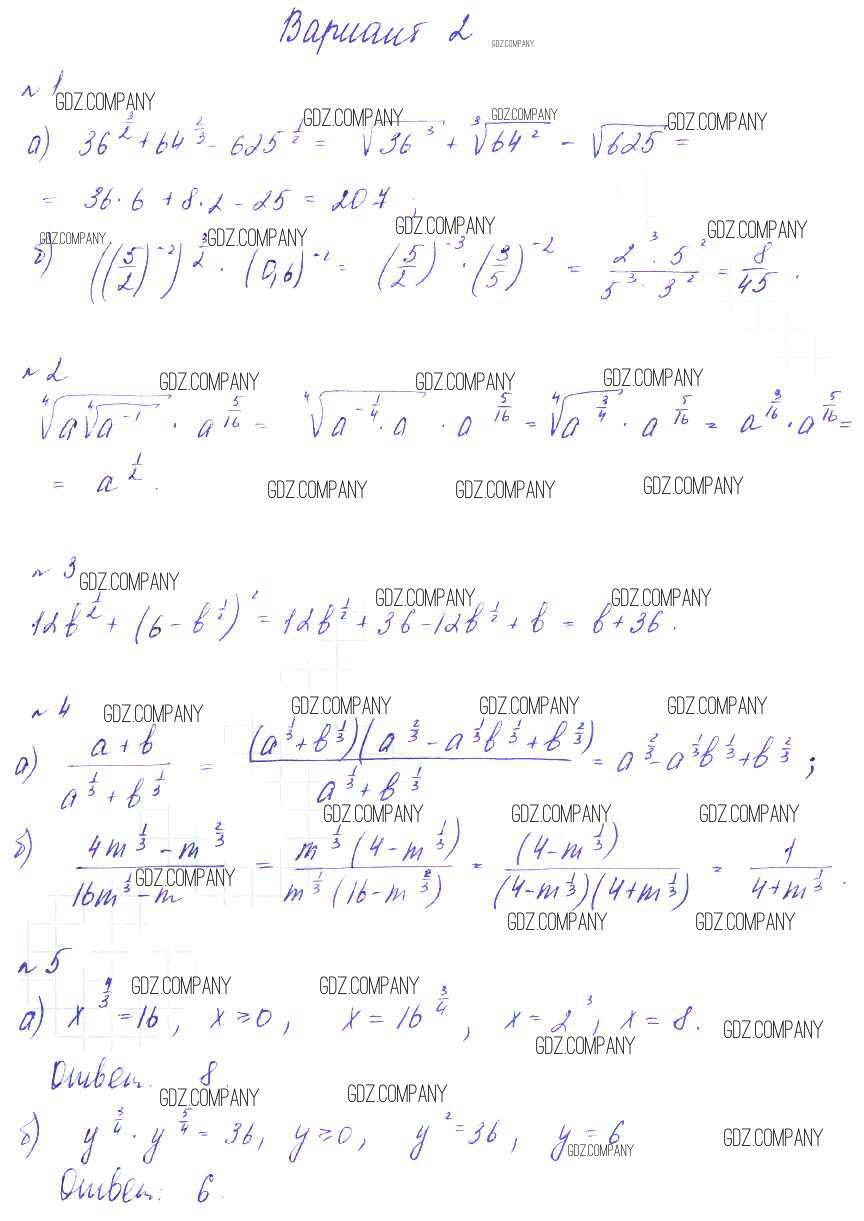 Вариант 2
GDZ.COMPANY
№ 1
GDZ.COMPANY GDZ.COMPANY GDZ.COMPANY GDZ.COMPANY
а) 36^(3/2) + 64^(2/3) - 625^(1/2) = √(36³) + ∛(64²) - √625 =
= 36·6 + 8·2 - 25 = 207;
GDZ.COMPANY GDZ.COMPANY GDZ.COMPANY GDZ.COMPANY
б) ((5/2)^(-2))^(3/2) · (0,6)^(-2) = (5/2)^(-3) · (3/5)^(-2) = (2³·5²)/(5³·3²) = 8/45.
№ 2
GDZ.COMPANY GDZ.COMPANY GDZ.COMPANY
⁴√(a ⁴√(a^(-1))) · a^(5/16) = ⁴√(a^(-1/4) · a) · a^(5/16) = ⁴√(a^(3/4)) · a^(5/16) = a^(3/16) · a^(5/16) =
= a^(1/2).
GDZ.COMPANY GDZ.COMPANY GDZ.COMPANY
№ 3
GDZ.COMPANY GDZ.COMPANY GDZ.COMPANY
12b^(1/2) + (6 - b^(1/2))² = 12b^(1/2) + 36 - 12b^(1/2) + b = b + 36.
№ 4
GDZ.COMPANY GDZ.COMPANY GDZ.COMPANY GDZ.COMPANY
а) (a + b)/(a^(1/3) + b^(1/3)) = ((a^(1/3) + b^(1/3))(a^(2/3) - a^(1/3)b^(1/3) + b^(2/3)))/(a^(1/3) + b^(1/3)) = a^(2/3) - a^(1/3)b^(1/3) + b^(2/3);
GDZ.COMPANY GDZ.COMPANY GDZ.COMPANY
б) (4m^(1/3) - m^(2/3))/(16m^(1/3) - m) = (m^(1/3)(4 - m^(1/3)))/(m^(1/3)(16 - m^(2/3))) = (4 - m^(1/3))/((4 - m^(1/3))(4 + m^(1/3))) = 1/(4 + m^(1/3)).
GDZ.COMPANY
GDZ.COMPANY GDZ.COMPANY
№ 5
GDZ.COMPANY GDZ.COMPANY
а) x^(4/3) = 16, x ≥ 0, x = 16^(3/4), x = 2³; x = 8.
GDZ.COMPANY GDZ.COMPANY
Ответ: 8.
GDZ.COMPANY GDZ.COMPANY
б) y^(3/4) · y^(5/4) = 36, y ≥ 0, y² = 36, y = 6
GDZ.COMPANY GDZ.COMPANY
Ответ: 6.